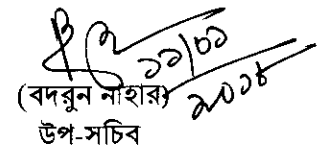 ১১|০১
২০১৮
(বদরুন নাহার)
উপ-সচিব